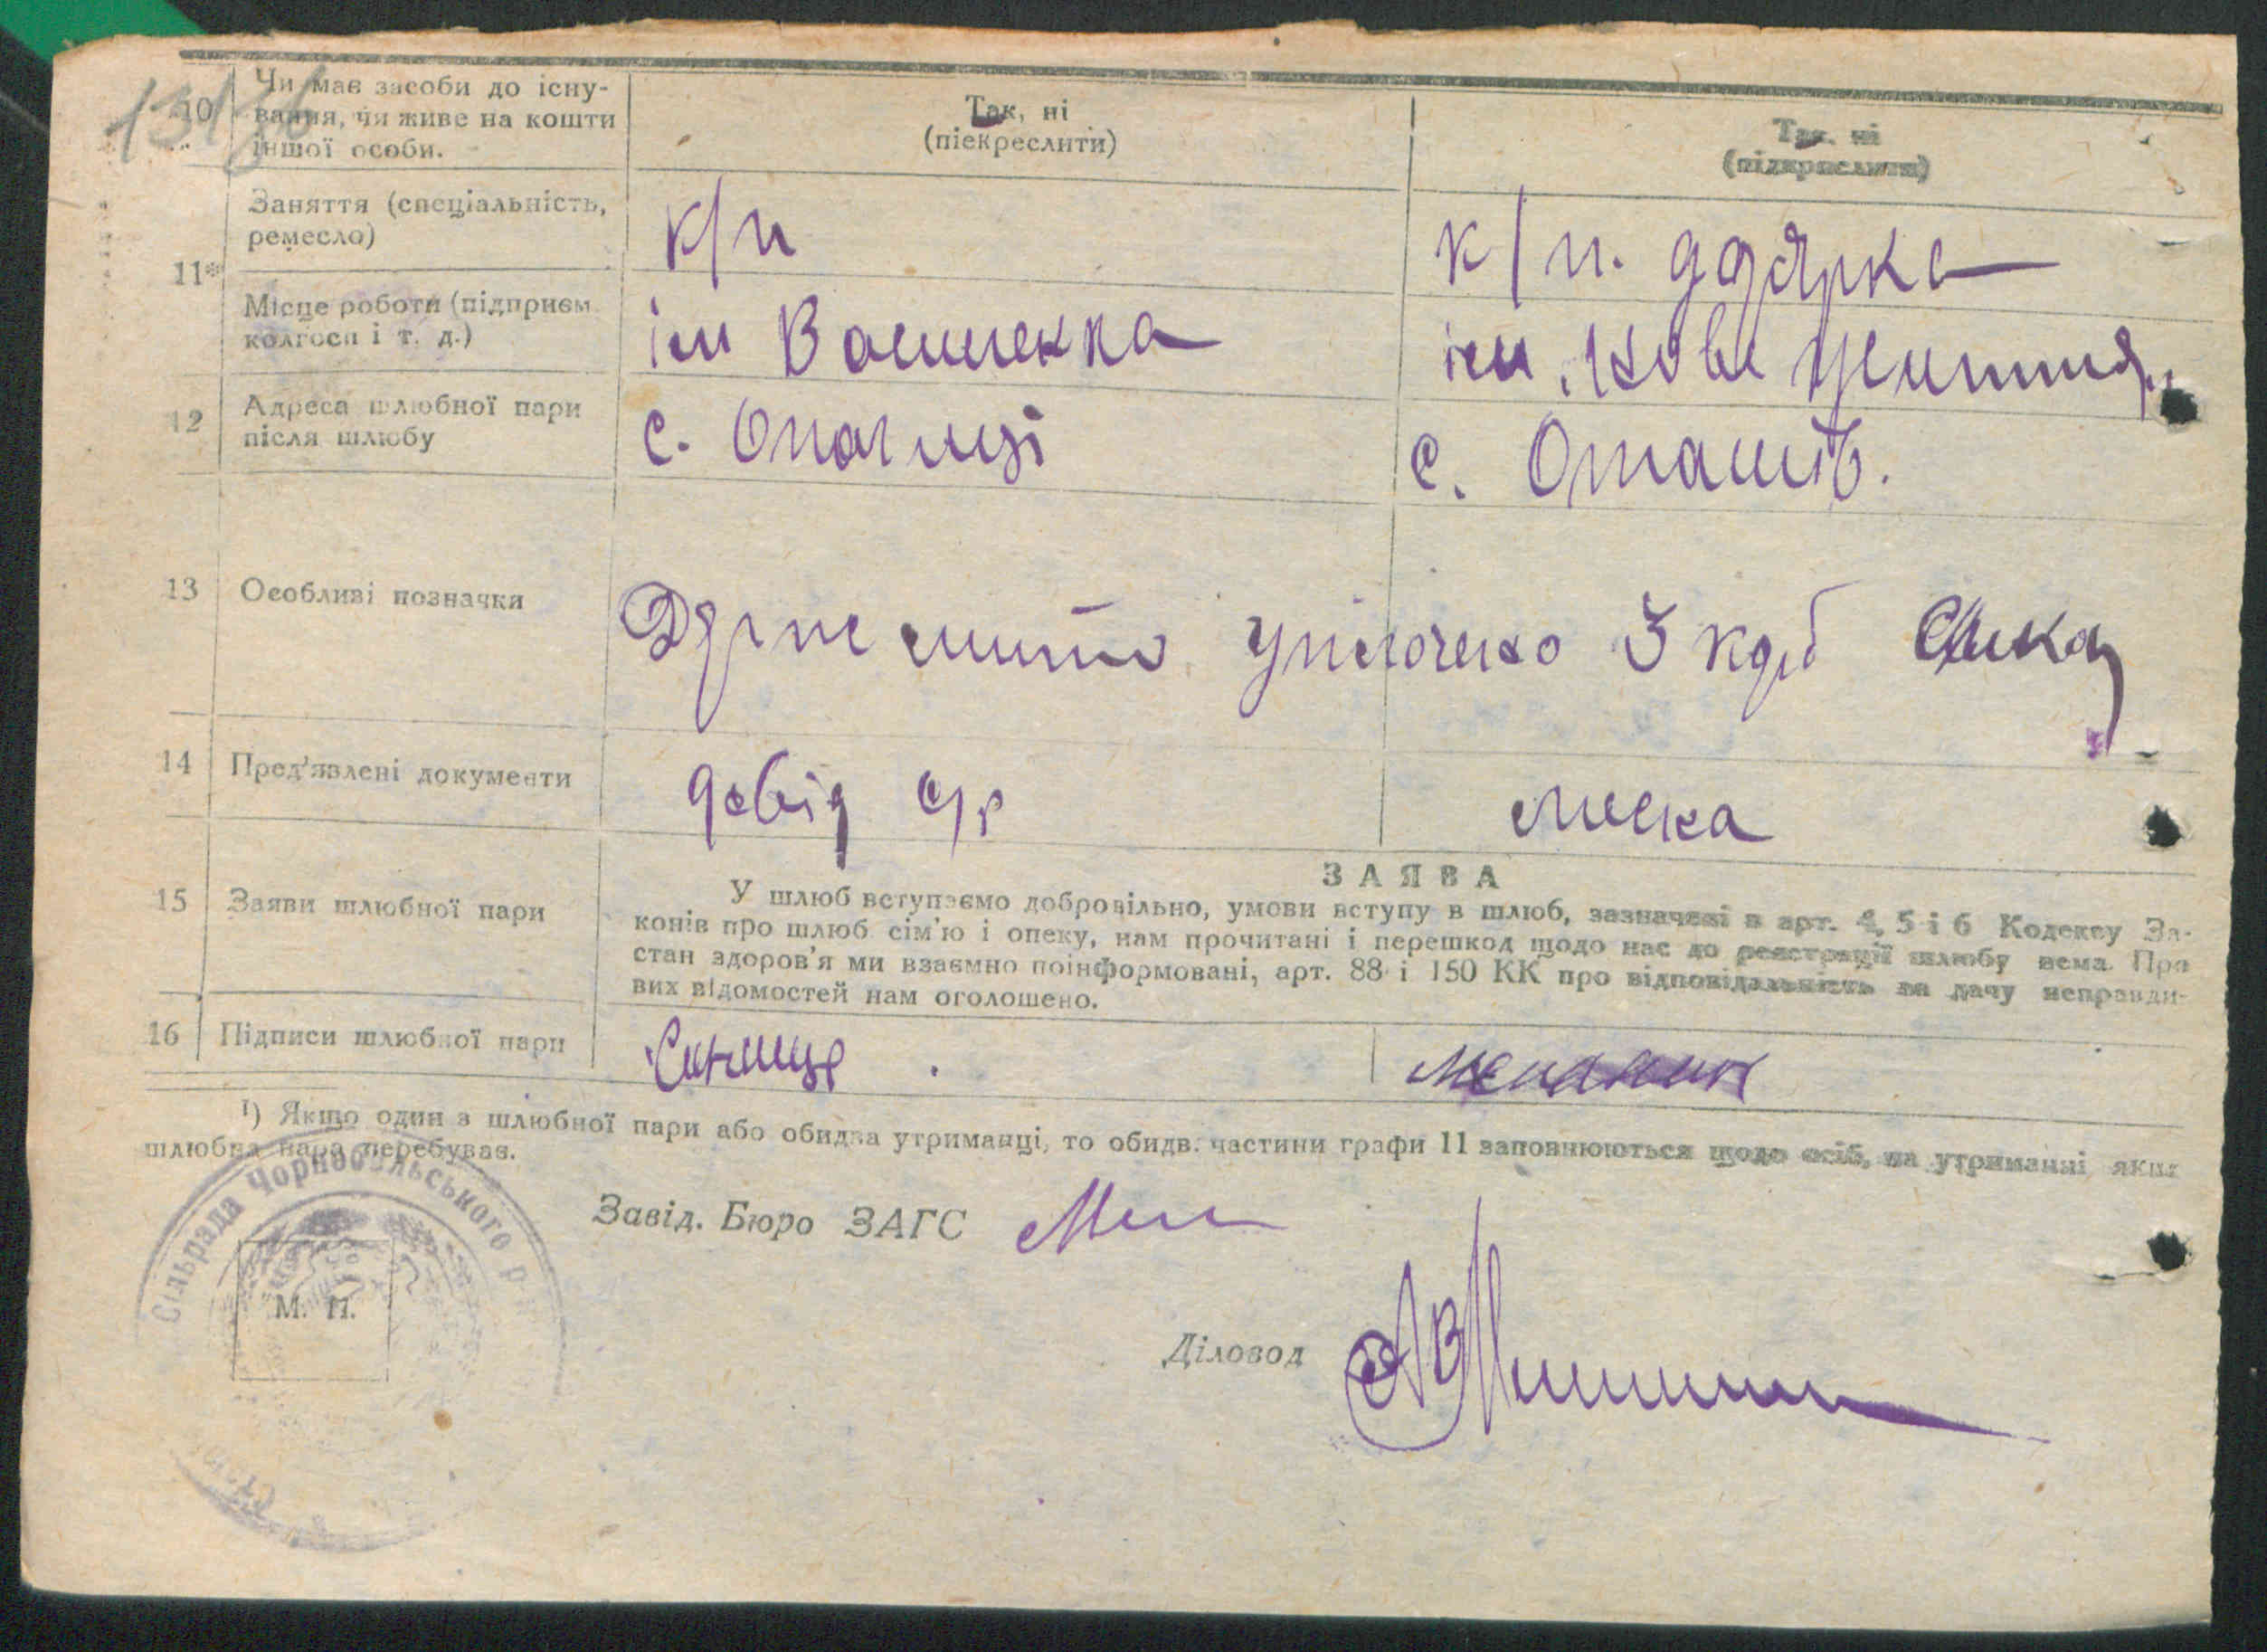 10 Чи має засоби до існу-
вання, чи живе на кошти
іншої особи.
Так, ні
(піекреслити)
Так, ні
(підкреслити)
11* Заняття (спеціальність,
ремесло)
к/п
к/п. ддярка
Місце роботи (підприєм.
колгосп і т. д.)
ім
ім. Нове життя"
12 Адреса шлюбної пари
після шлюбу
с. Опачичі
с. Оташів.
13 Особливі позначки
мито уплочено 3 крб
14 Пред'явлені документи
довід с/р
15 Заяви шлюбної пари
ЗАЯВА
У шлюб вступаємо добровільно, умови вступу в шлюб, зазначені в арт. 4, 5 і 6 Кодексу За-
конів про шлюб сім'ю і опеку, нам прочитані і перешкод щодо нас до реєстрації шлюбу нема. Про
стан здоров'я ми взаємно поінформовані, арт. 88 і 150 КК про відповідальність за дачу неправди-
вих відомостей нам оголошено.
16 Підписи шлюбної пари
1) Якщо один з шлюбної пари або обидва утриманці, то обидв. частини графи 11 заповнюються щодо осіб, на утриманні яких
шлюбна пара перебуває.
Сільрада Чорнобильського р
М. П.
Завід. Бюро ЗАГС
Діловод